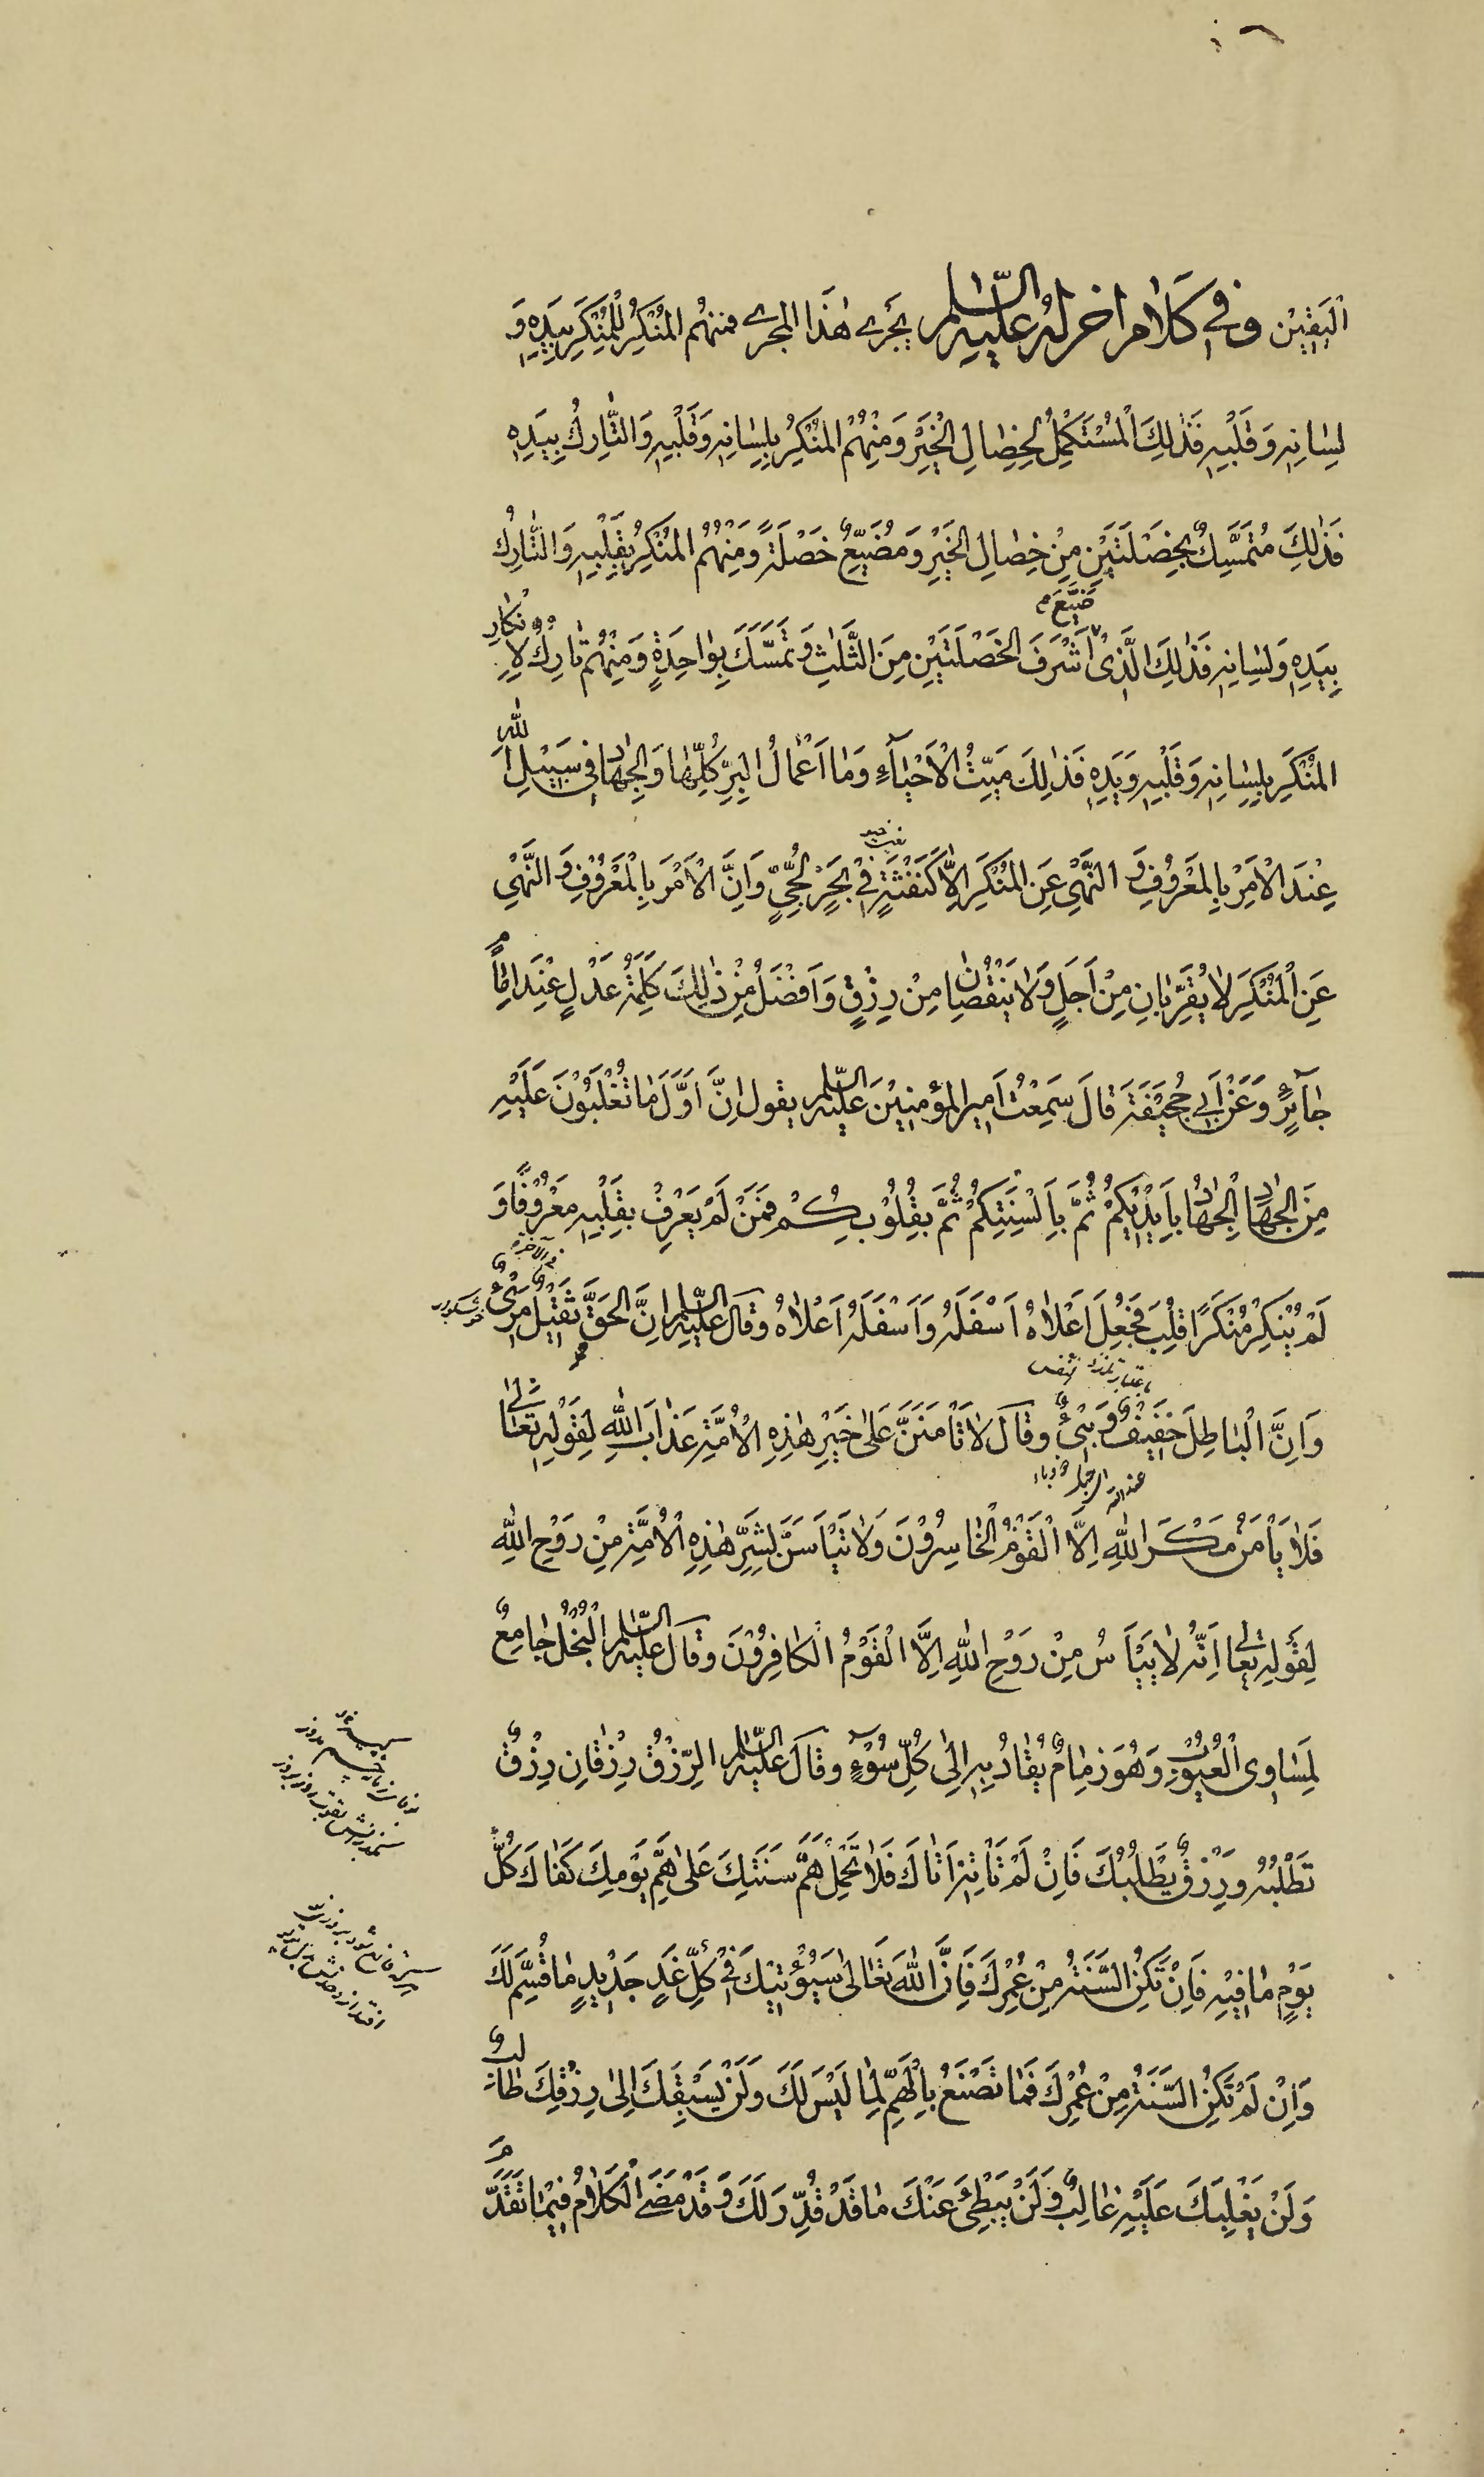 اَلْيَقِيْن وَفِي كَلَامٍ اٰخَرَ لَهُ عَلَيْهِ السَّلٰم يَجْرِے هٰذَا الْمَجْرے فمنهُم المُنْكِرُ لِلْمُنْكَرِ بِيَدِهٖ وَ
لِسَانِهٖ وَقَلْبِهٖ فَذٰلِكَ الْمُسْتَكْمِلُ لِخِصَالِ الْخَيْرِ وَمِنْهُمُ المُنْكِرُ بِلِسَانِهٖ وَقَلْبِهٖ وَالتَّارِكُ بِيَدِهٖ
فَذٰلِكَ مُتَمَسِّكٌ بِخَصْلَتَيْنِ مِنْ خِصَالِ الْخَيْرِ وَمُضَيِّعٌ خَصْلَةً وَمِنْهُمُ المُنْكِرُ بِقَلْبِهٖ وَالتَّارِكُ
ضَيَّعَ
بِيَدِهٖ وَلِسَانِهٖ فَذٰلِكَ الَّذِىْ اَشْرَفَ الخَصْلَتَيْنِ مِنَ الثَّلٰثِ وَتَمَسَّكَ بِوَاحِدَةٍ وَمِنْهُمْ تَارِكٌ لِاِنْكَارِ
المُنْكَرِ بِلِسَانِهٖ وَقَلْبِهٖ وَيَدِهٖ فَذٰلِكَ مَيِّتُ الْاَحْيَآءِ وَمَا اَعْمَالُ الْبِرِّ كُلُّهَا وَالْجِهَادُ فِى سَبِيْلِ اللّٰهِ
عِنْدَ الْاَمْرِ بِالْمَعْرُوفِ وَ النَّهْىِ عَنِ المُنْكَرِ اِلَّا كَنَفْثَةٍ فِىْ بَحْرٍ لُجِّىٍّ وَاِنَّ الْاَمْرَ بِالْمَعْرُوْفِ وَ النَّهْىَ
عَنِ الْمُنْكَرِ لَا يُقَرِّبَانِ مِنْ اَجَلٍ وَلَا يَنْقُصَانِ مِنْ رِزْقٍ وَاَفْضَلُ مِنْ ذٰلِكَ كَلِمَةُ عَدْلٍ عِنْدَ اِمَامٍ
جَآئِرٍ وَعَنْ اَبِي جُحَيْفَةَ قَالَ سَمِعْتُ اَمِيرَ المُؤمِنِيْنَ عَلَيْهِ السَّلٰم يقول اِنَّ اَوَّلَ مَا تُغْلَبُوْنَ عَلَيْهِ
مِنَ الْجِهَادِ الْجِهَادُ بِاَيْدِيْكُمْ ثُمَّ بِاَلْسِنَتِكُمْ ثُمَّ بِقُلُوْبِكُمْ فَمَنْ لَمْ يَعْرِفْ بِقَلْبِهٖ مَعْرُوْفًا وَ
لَمْ يُنْكِرْ مُنْكَرًا قُلِبَ فَجُعِلَ اَعْلَاهُ اَسْفَلَهُ وَاَسْفَلَهُ اَعْلَاهُ وَقَالَ عَلَيْهِ السَّلٰم اِنَّ الْحَقَّ ثَقِيْلٌ مَرِىْءٌ
وَاِنَّ الْبَاطِلَ خَفِيْفٌ وَبِىْءٌ وَقَالَ لَا تَاْمَنَنَّ عَلٰى خَيْرِ هٰذِهِ الْاُمَّةِ عَذَابَ اللّٰهِ لِقَوْلِهٖ تَعَالٰى
فَلَا يَاْمَنُ مَكْرَ اللّٰهِ اِلَّا الْقَوْمُ الْخَاسِرُوْنَ وَلَا تَيْاَسَنَّ لِشَرِّ هٰذِهِ الْاُمَّةِ مِنْ رَوْحِ اللّٰهِ
لِقَوْلِهٖ تَعٰالٰى اِنَّهُ لَا يَيْاَسُ مِنْ رَوْحِ اللّٰهِ اِلَّا الْقَوْمُ الْكَافِرُوْنَ وَقَالَ عَلَيْهِ السَّلٰم الْبُخْلُ جَامِعٌ
لِمَسَاوِى الْعُيُوْبِ وَهُوَ زِمَامٌ يُقَادُ بِهٖ اِلٰى كُلِّ سُوْءٍ وَقَالَ عَلَيْهِ السَّلٰم الرِّزْقُ رِزْقَانِ رِزْقٌ
تَطْلُبُهُ وَرِزْقٌ يَطْلُبُكَ فَاِنْ لَمْ تَاْتِهٖ اَتَاكَ فَلَا تَحْمِلْ هَمَّ سَنَتِكَ عَلٰى هَمِّ يَوْمِكَ كَفَاكَ كُلَّ
يَوْمٍ مَا فِيْهِ فَاِنْ تَكُنِ السَّنَةُ مِنْ عُمْرِكَ فَاِنَّ اللّٰهَ تَعَالٰى سَيُؤْتِيْكَ فِىْ كُلِّ غَدٍ جَدِيْدٍ مَا قُسِمَ لَكَ
وَاِنْ لَمْ تَكُنِ السَّنَةُ مِنْ عُمْرِكَ فَمَا تَصْنَعُ بِالْهَمِّ لِمَا لَيْسَ لَكَ وَلَنْ يَسْبِقَكَ اِلٰى رِزْقِكَ طَالِبٌ
وَلَنْ يَغْلِبَكَ عَلَيْهِ غَالِبٌ وَلَنْ يُبْطِئَ عَنْكَ مَا قَدْ قُدِّرَ لَكَ وَقَدْ مَضَى الْكَلَامُ فِيْمَا تَقَدَّمَ